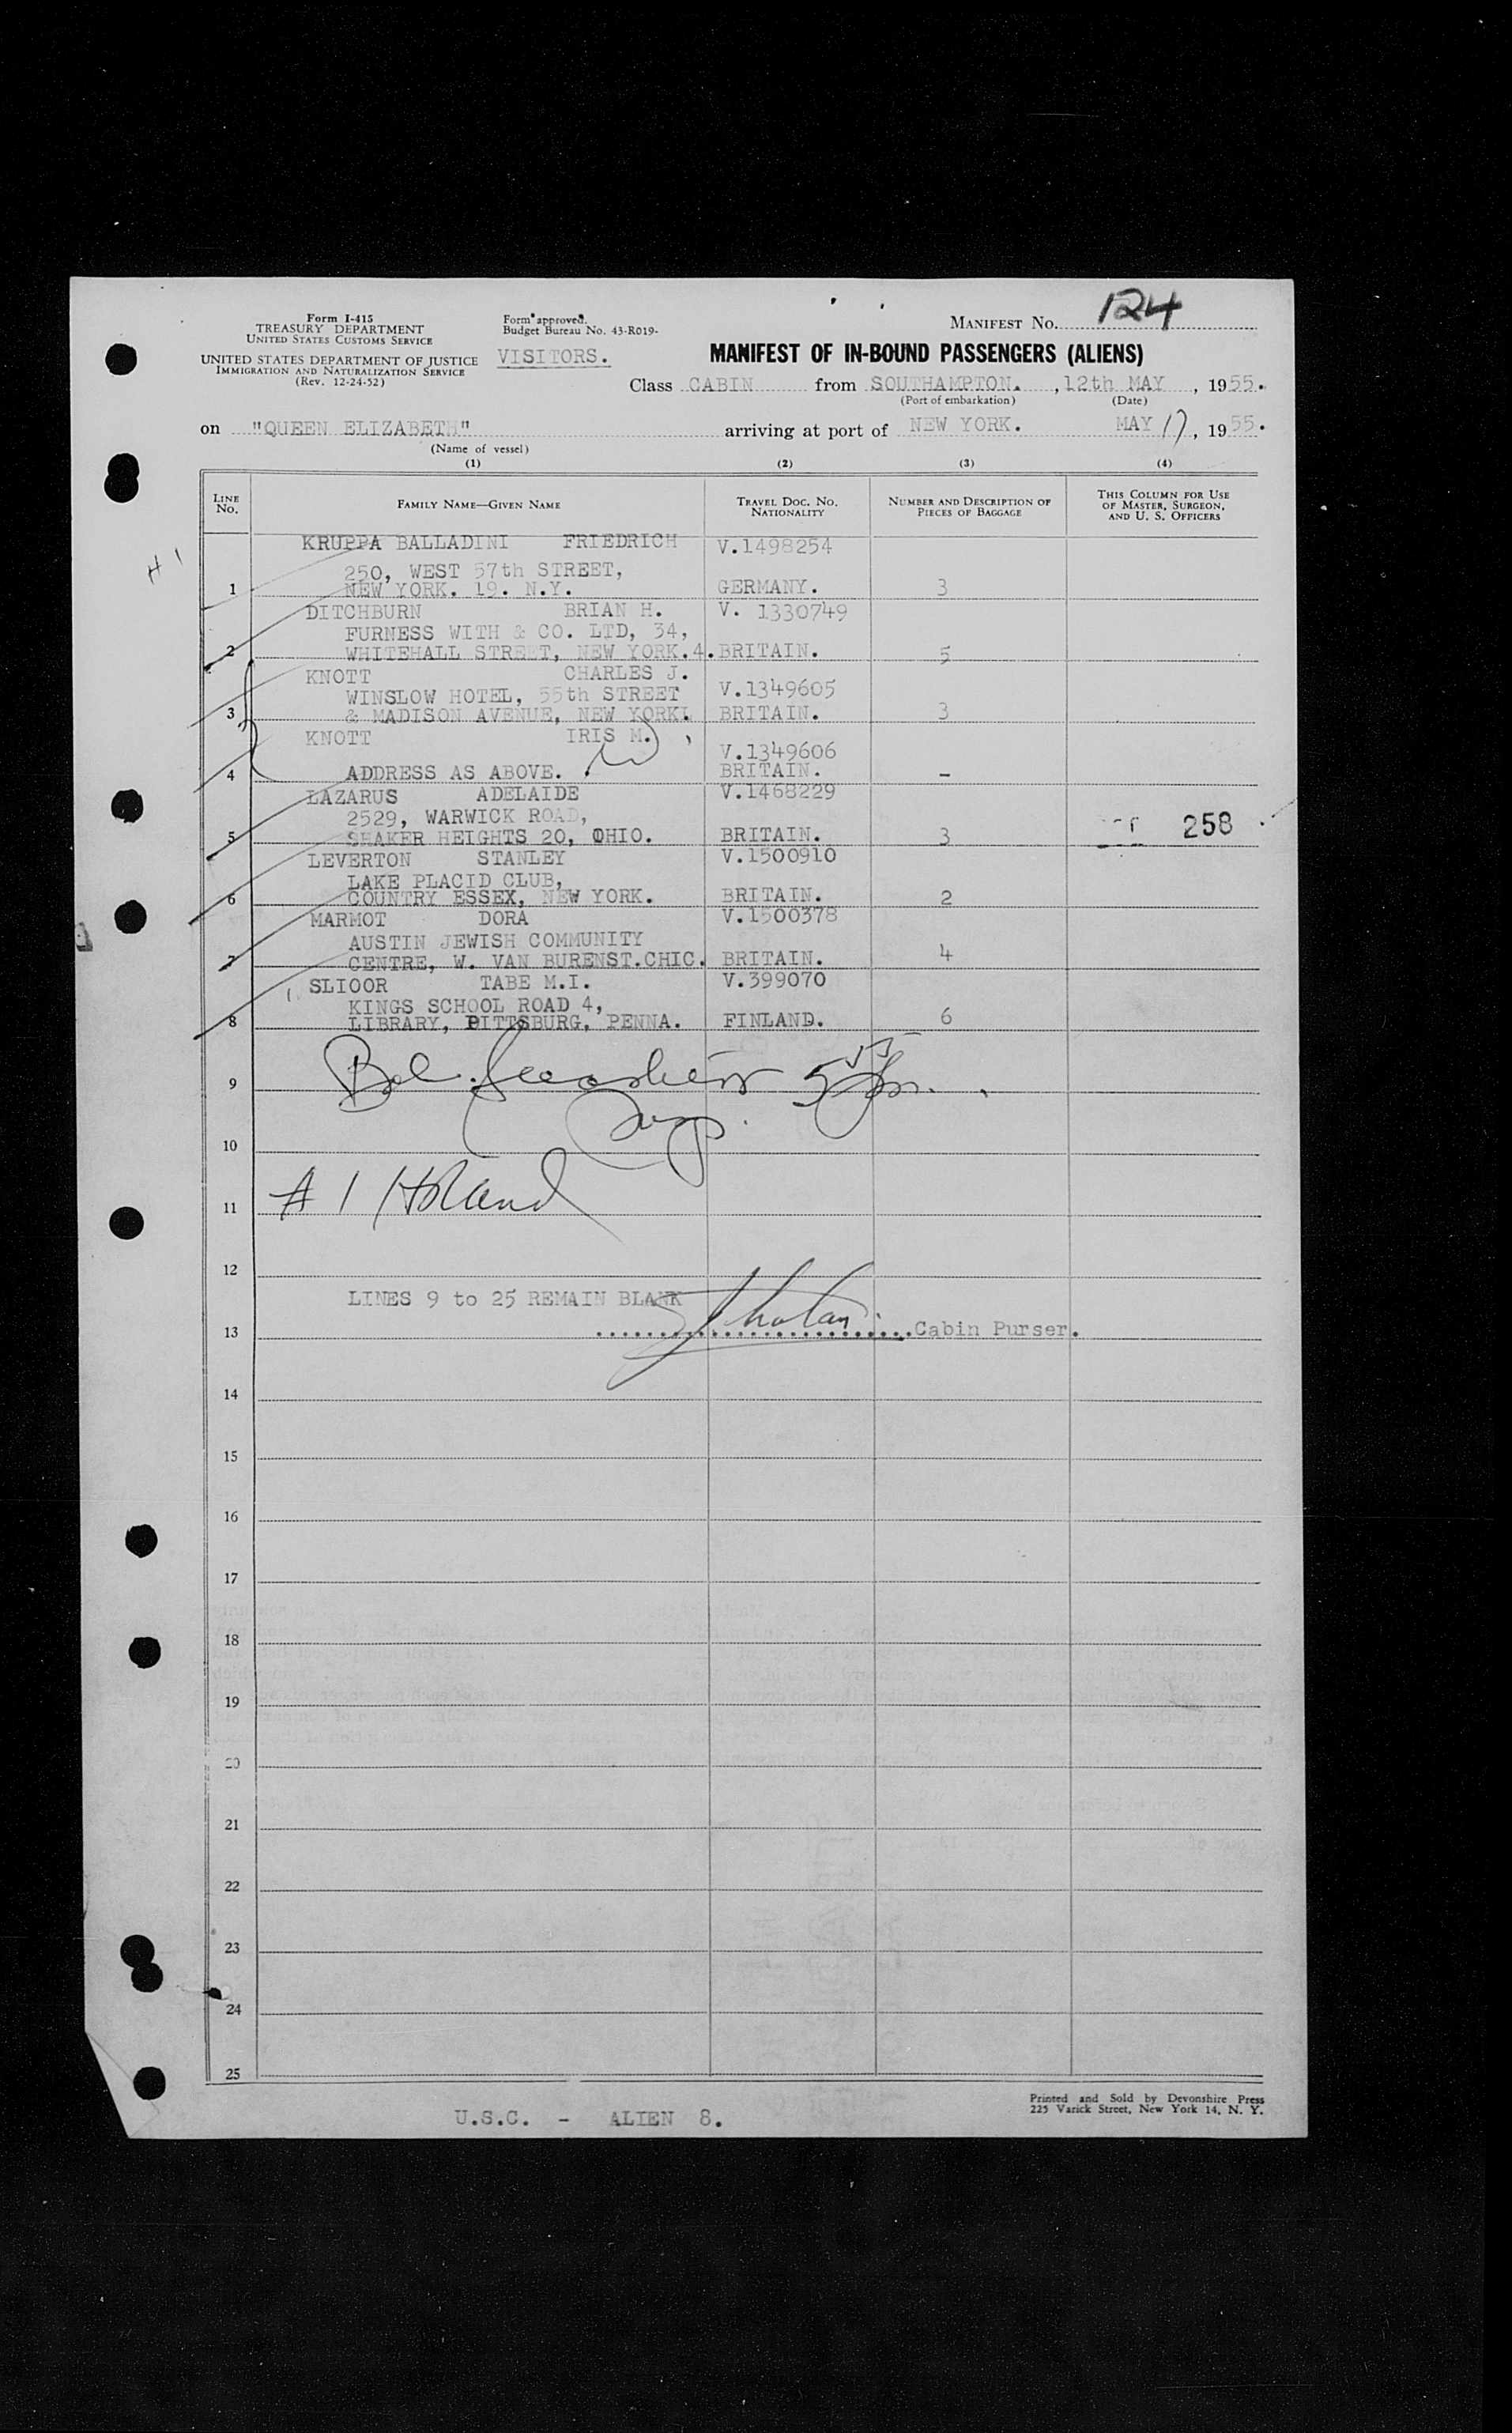 124
Form I-415
TREASURY DEPARTMENT
UNITED STATES CUSTOMS SERVICE
UNITED STATES DEPARTMENT OF JUSTICE
IMMIGRATION AND NATURALIZATION SERVICE
(Rev. 12-24-52)
Form approved.
Budget Bureau No. 43-R019-
VISITORS.
MANIFEST NO.
MANIFEST OF IN-BOUND PASSENGERS (ALIENS)
Class CABIN from SOUTHAMPTON. , 12th MAY , 1955.
(Port of embarkation) (Date)
on "QUEEN ELIZABETH" arriving at port of NEW YORK. MAY 17, 1955.
(Name of vessel)
(1) (2) (3) (4)
LINE No. FAMILY NAME—GIVEN NAME TRAVEL DOC. NO. NATIONALITY NUMBER AND DESCRIPTION OF PIECES OF BAGGAGE THIS COLUMN FOR USE OF MASTER, SURGEON, AND U. S. OFFICERS
KRUPPA BALLADINI FRIEDRICH V.1498254
250, WEST 57th STREET,
1 NEW YORK. 19. N.Y. GERMANY. 3
DITCHBURN BRIAN H. V. 1330749
FURNESS WITH & CO. LTD, 34,
2 WHITEHALL STREET, NEW YORK.4. BRITAIN. 5
KNOTT CHARLES J.
WINSLOW HOTEL, 55th STREET V.1349605
3 & MADISON AVENUE, NEW YORK. BRITAIN. 3
KNOTT IRIS M.
V.1349606
4 ADDRESS AS ABOVE. BRITAIN. –
LAZARUS ADELAIDE V.1468229
2529, WARWICK ROAD,
5 SHAKER HEIGHTS 20, OHIO. BRITAIN. 3 258
LEVERTON STANLEY V.1500910
LAKE PLACID CLUB,
6 COUNTRY ESSEX, NEW YORK. BRITAIN. 2
MARMOT DORA V.1500378
AUSTIN JEWISH COMMUNITY
7 CENTRE, W. VAN BURENST.CHIC. BRITAIN. 4
SLIOOR TABE M.I. V.399070
KINGS SCHOOL ROAD 4,
8 LIBRARY, PITTSBURG, PENNA. FINLAND. 6
9
10
11 # 1
12
LINES 9 to 25 REMAIN BLANK
13 Cabin Purser.
14
15
16
17
18
19
20
21
22
23
24
25
Printed and Sold by Devonshire Press
225 Varick Street, New York 14, N. Y.
U.S.C. – ALIEN 8.